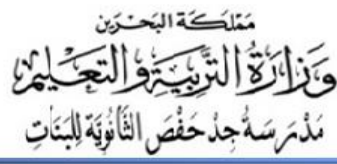 مَمْلَكَة البَحْرَين
وَزَارَةُ التَّربِيَةِ وَ التَّعْلِيْمِ
مَدْرَسَةُ جِدْحَفْصَ الثَّانَوِيَّة لِلبَنَاتِ